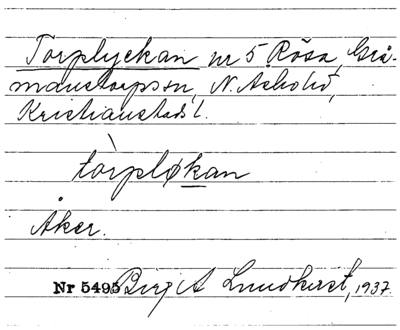 Torplyckan nr 5 Rösa, Grå-
manstorps sn, N. Åsbo hd,
Kristianstads l.
tòrpløkan
Åker.
Nr 5495 Birg A Lundkvist, 1937